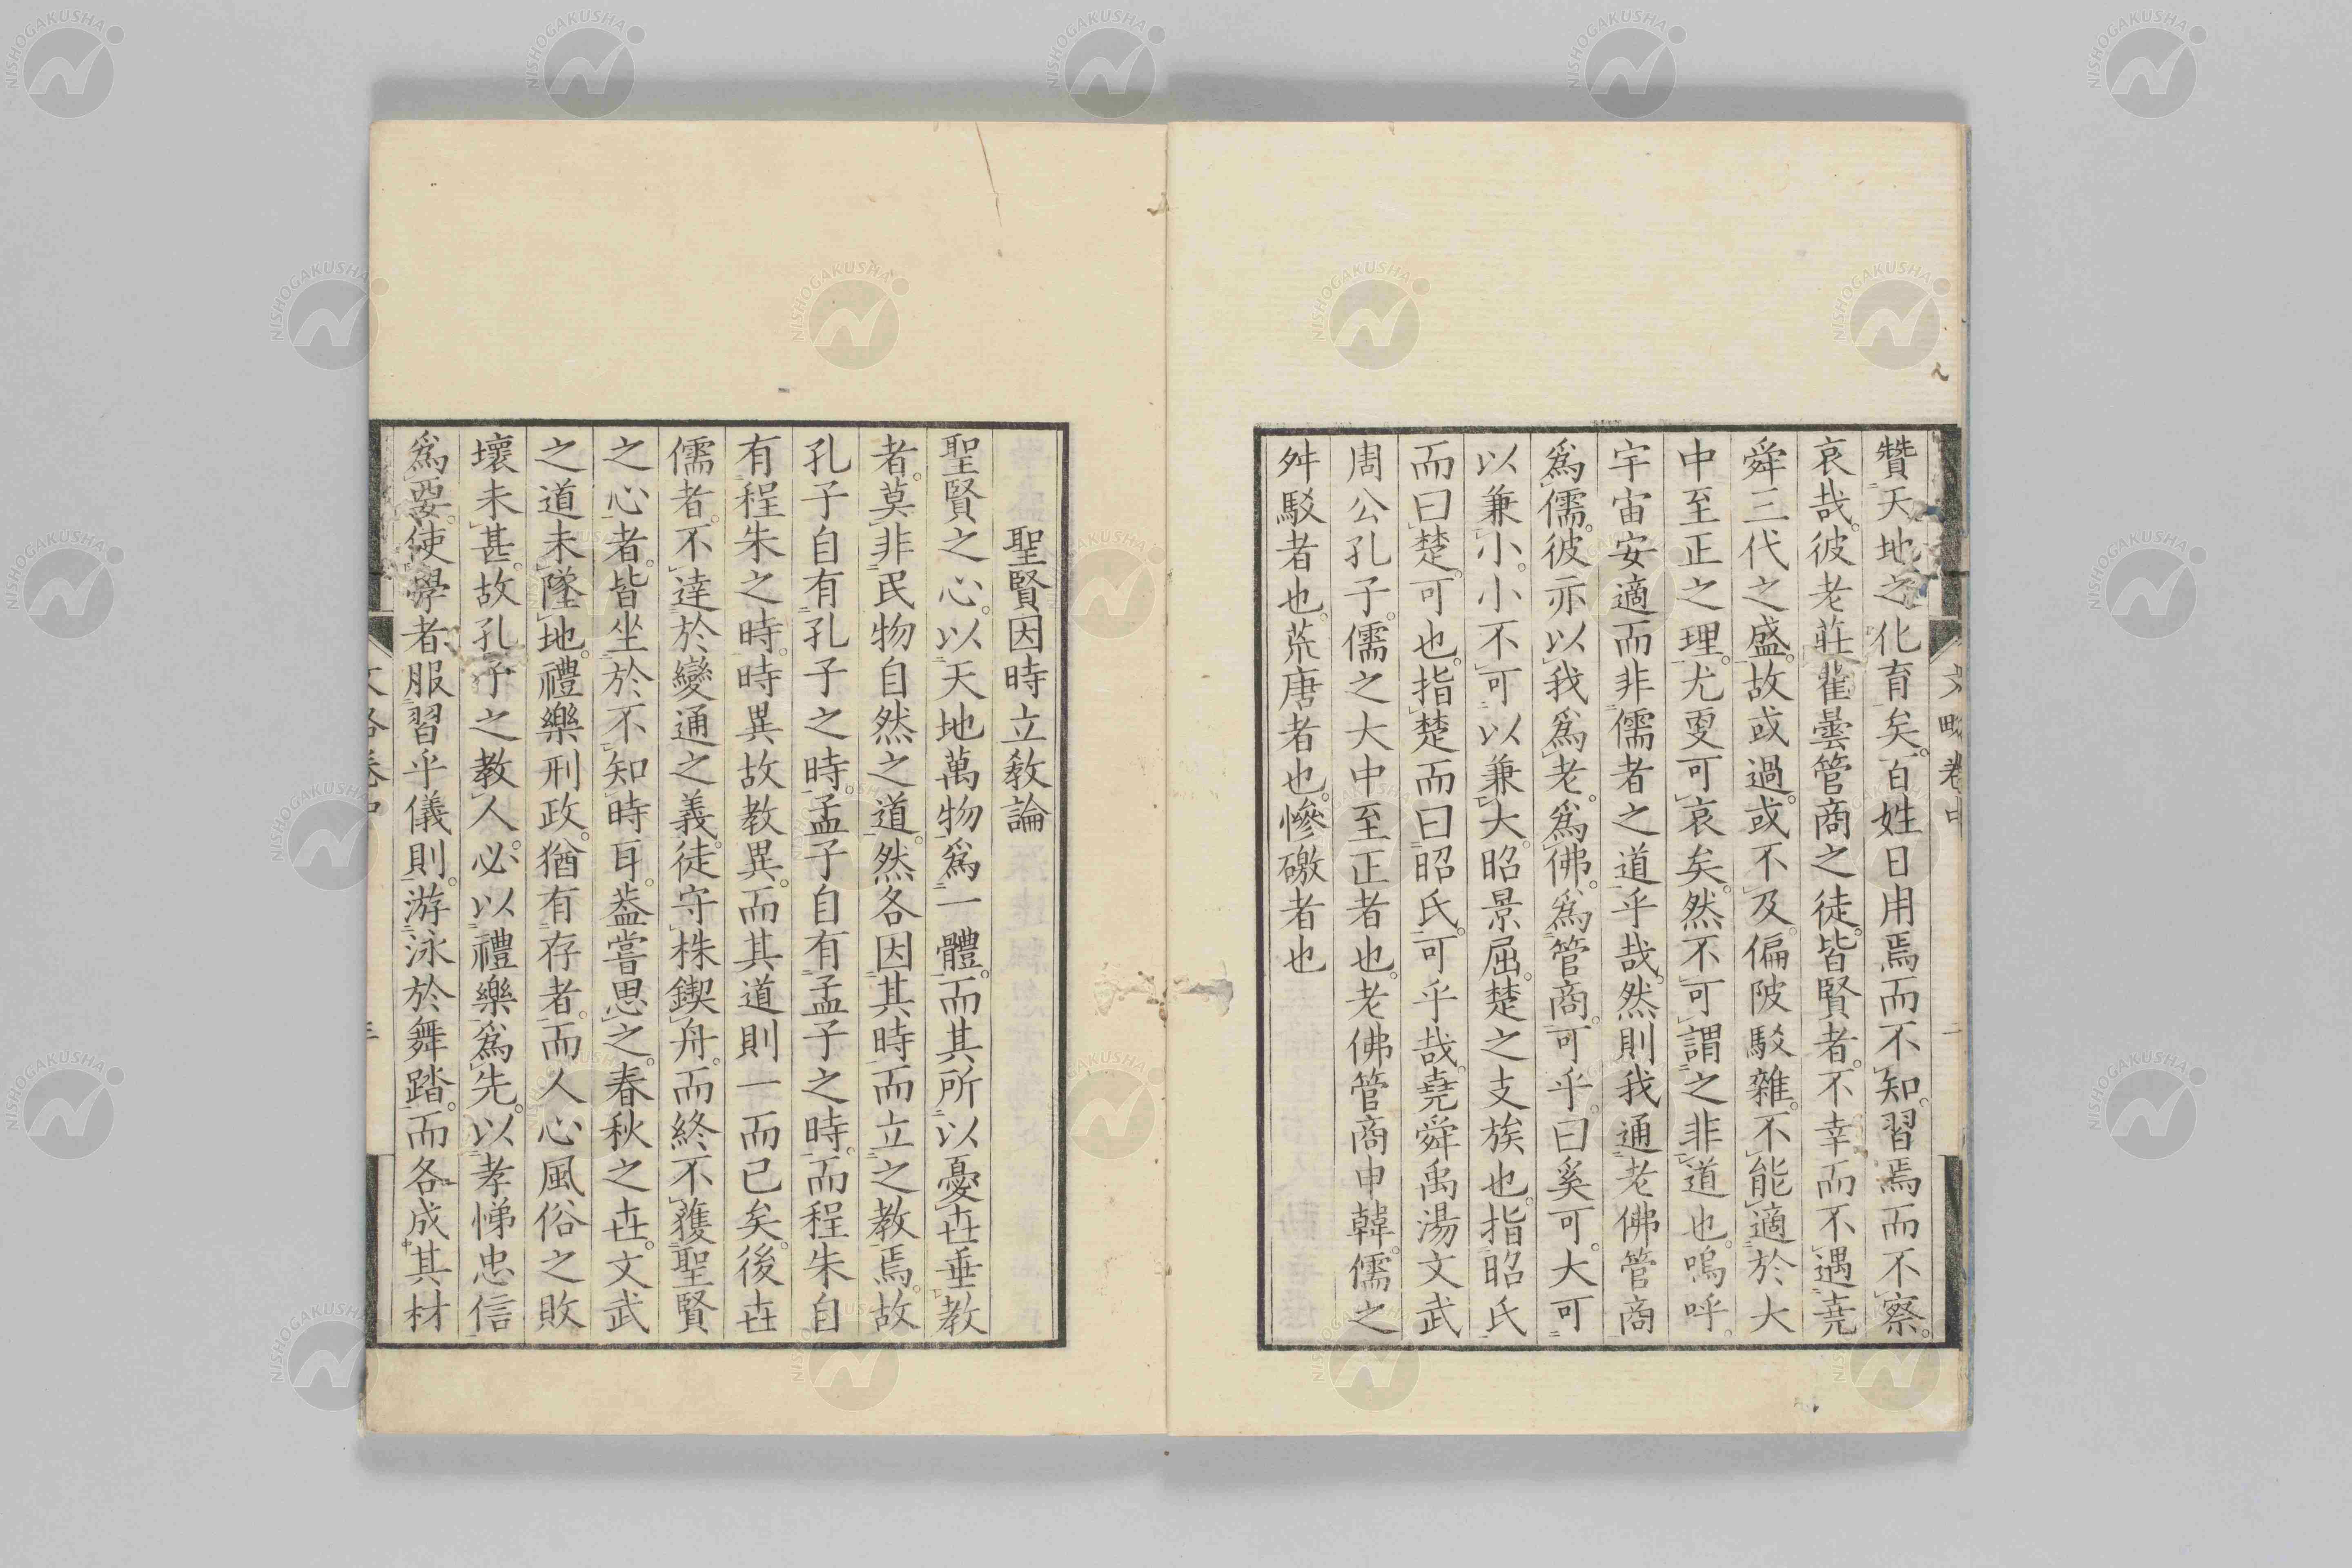 贊天地之化育矣。百姓日用焉而不知。習焉而不察。
哀哉。彼老莊瞿曇管商之徒。皆賢者。不幸而不遇堯
舜三代之盛。故或過。或不及。偏陂駁雜。不能適於大
中至正之理。尤更可哀矣。然不可謂之非道也。嗚呼。
宇宙安適而非儒者之道乎哉。然則我通老佛管商
爲儒。彼亦以我爲老。爲佛。爲管商。可乎。曰奚可。大可
以兼小。小不可以兼大。昭景屈。楚之支族也。指昭氏
而曰楚。可也。指楚而曰昭氏。可乎哉。堯舜禹湯文武
周公孔子。儒之大中至正者也。老佛管商申韓。儒之
舛駁者也。荒唐者也。慘礉者也
聖賢因時立教論
聖賢之心。以天地萬物爲一體。而其所以憂世垂教
者。莫非民物自然之道。然各因其時而立之教焉。故
孔子自有孔子之時。孟子自有孟子之時。而程朱自
有程朱之時。時異故教異。而其道則一而已矣。後世
儒者。不達於變通之義。徒守株鍥舟。而終不獲聖賢
之心者。皆坐於不知時耳。蓋嘗思之。春秋之世。文武
之道未墜地。禮樂刑政。猶有存者。而人心風俗之敗
壞未甚。故孔子之教人。必以禮樂爲先。以孝悌忠信
爲要。使學者服習乎儀則。游泳於舞踏。而各成其材
文略卷中
二
NISHOGAKUSHA